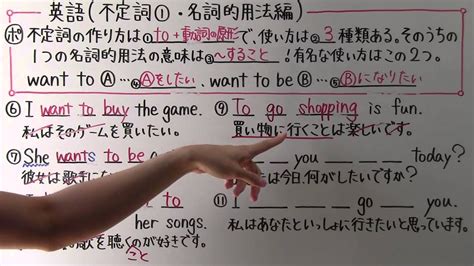 英語(不定詞①・名詞的用法編)
ポ 不定詞の作り方は①to+動詞の原形で、使い方は②3種類ある。そのうちの
1つの名詞的用法の意味は③~すること！有名な使い方はこの2つ。
want to Ⓐ…④Ⓐをしたい、want to be Ⓑ…⑤Ⓑになりたい
⑥ I want to buy the game.
私はそのゲームを買いたい。
⑨ To go shopping is fun.
買い物に行くことは楽しいです。
⑦ She wants to be a
彼女は歌手にな
you today?
は今日、何がしたいですか？
to
her songs.
の歌を聴くのが好きです。
こと
⑪ I go you.
私はあなたといっしょに行きたいと思っています。